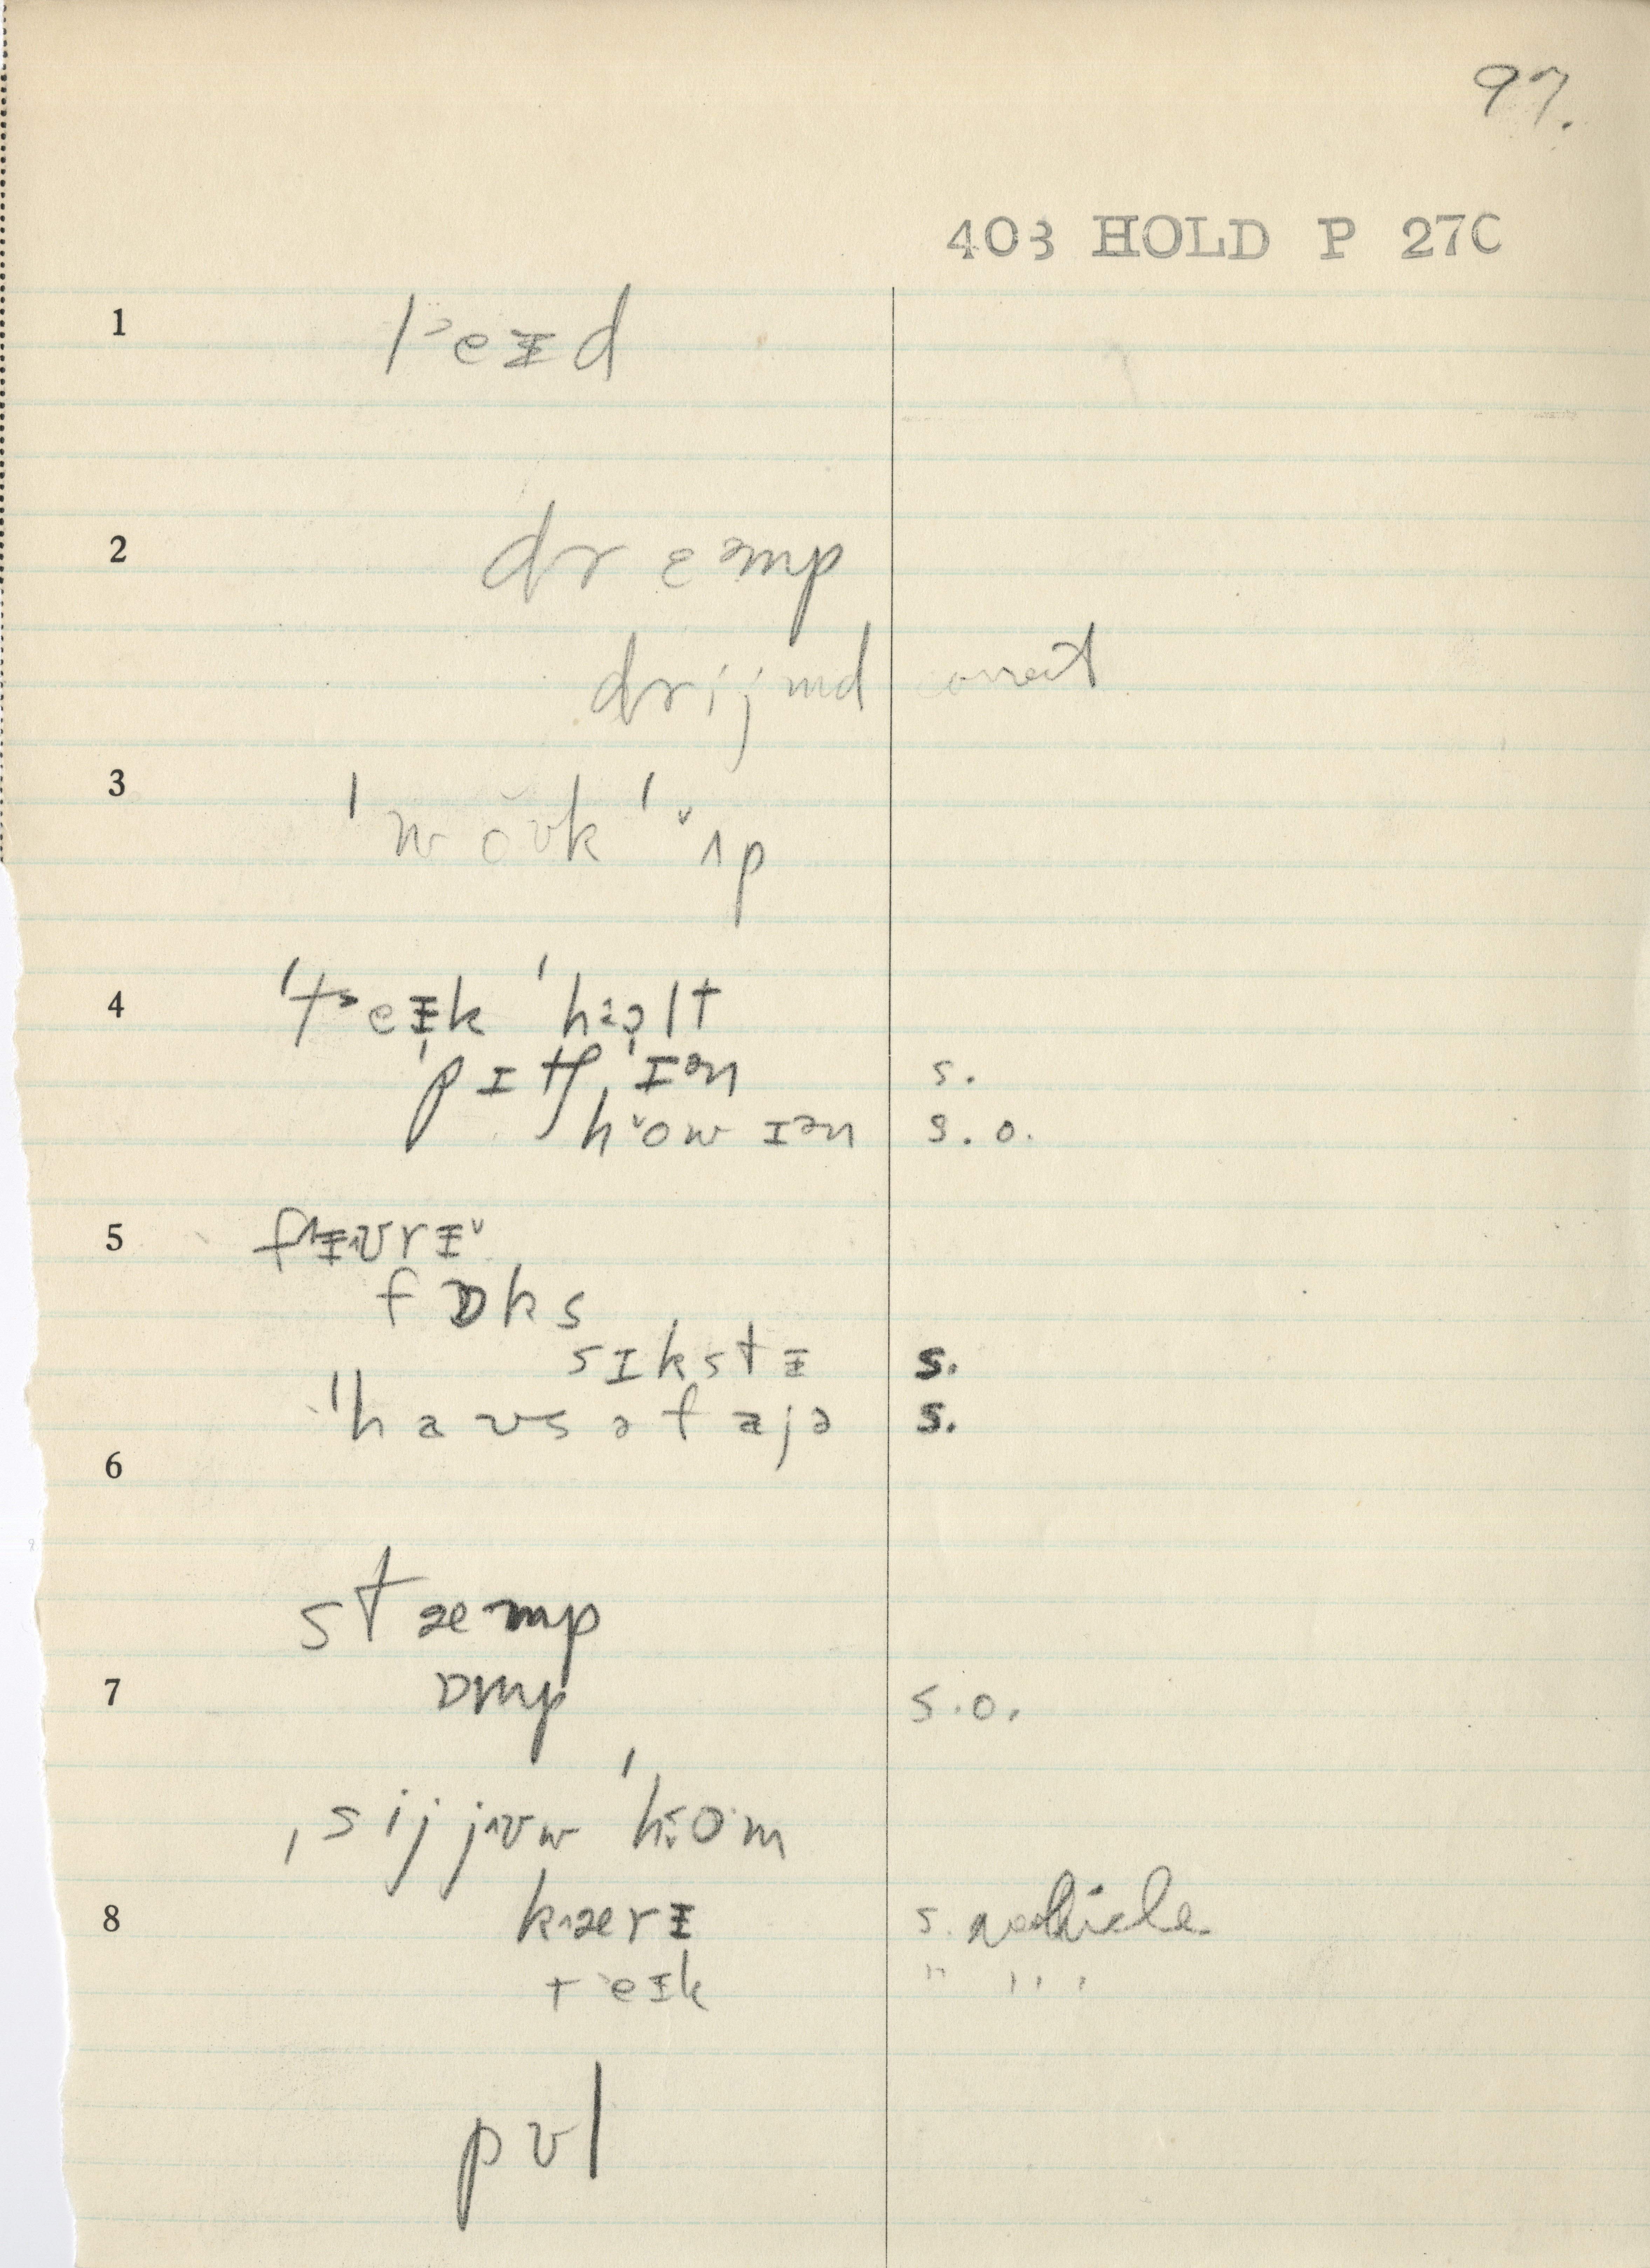 97.
403 HOLD P 27C
1 l˃eɪd
2 drɛəmp
drijmd correct
3 ˈwoʊk ˈ˅ʌp
4 ˈt˃eɪk ˈhəlt
ˈpɪtʃˌɪən s.
h˅ow ɪən s.o.
5 f^ɪʊrɪ˅
fɒks
sɪkstɪ s.
"haʊsəfajə s.
6
stæmp
7 ɒmp s.o.
ˌsij jʊw ˈhom
8 k˄ærɪ s. vehicle
t˃eɪk " " "
pʊl